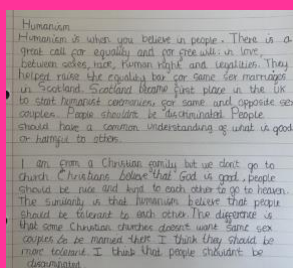 Humanism
Humanism is when you believe in people. There is a
great call for equality and for free will; in love,
between sexes, race, human right and legalities. They
helped raise the equality bar for same sex marriages
in Scotland. Scotland became first place in the UK
to start humanist ceremonies for same and opposite sex
couples. People shouldnt be discriminated. People
should have a common understanding of what is good
or harmful to others.
I am from a Christian family but we don't go to
church. Christians believe that God is good, people
should be nice and kind to each other to go to heaven.
The similarity is that humanism believe that people
should be tolerant to each other. The difference is
that some Christian churches doesn't want same sex
couples to be married there. I think they should be
more tolerant. I think that people shouldn't be
discriminated